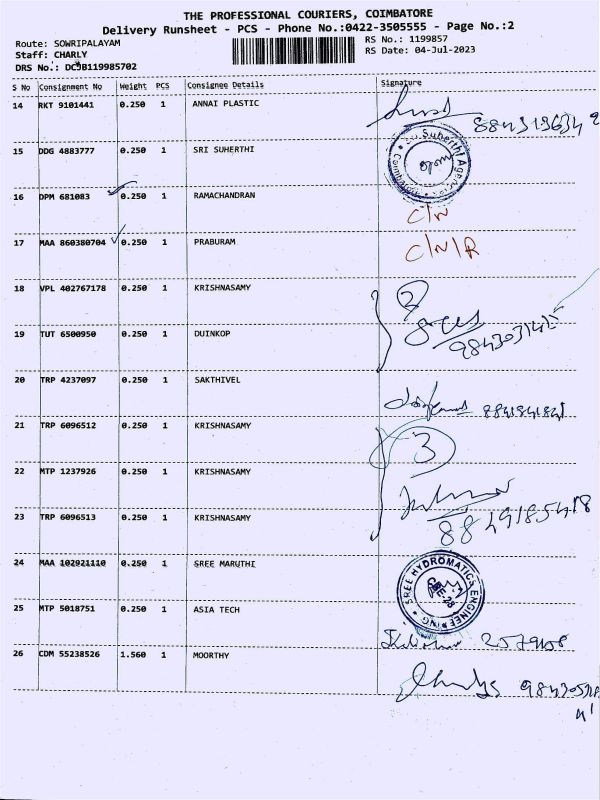 THE PROFESSIONAL COURIERS, COIMBATORE
Delivery Runsheet - PCS - Phone No.:0422-3505555 - Page No.:2
Route: SOWRIPALAYAM
RS No.: 1199857
Staff: CHARLY
RS Date: 04-Jul-2023
DRS No.: DCJB119985702
S No Consignment No Weight PCS Consignee Details Signature
14 RKT 9101441 0.250 1 ANNAI PLASTIC
15 DDG 4883777 0.250 1 SRI SUHERTHI
Sri Suherthi Agencies Coimbatore
16 DPM 681083 0.250 1 RAMACHANDRAN C/N
17 MAA 860380704 0.250 1 PRABURAM C/N/R
18 VPL 402767178 0.250 1 KRISHNASAMY 2
19 TUT 6500950 0.250 1 DUINKOP
20 TRP 4237097 0.250 1 SAKTHIVEL
21 TRP 6096512 0.250 1 KRISHNASAMY 3
22 MTP 1237926 0.250 1 KRISHNASAMY
23 TRP 6096513 0.250 1 KRISHNASAMY
24 MAA 102921110 0.250 1 SREE MARUTHI
SREE HYDROMATICS ENGINEERING
25 MTP 5018751 0.250 1 ASIA TECH
26 CDM 55238526 1.560 1 MOORTHY